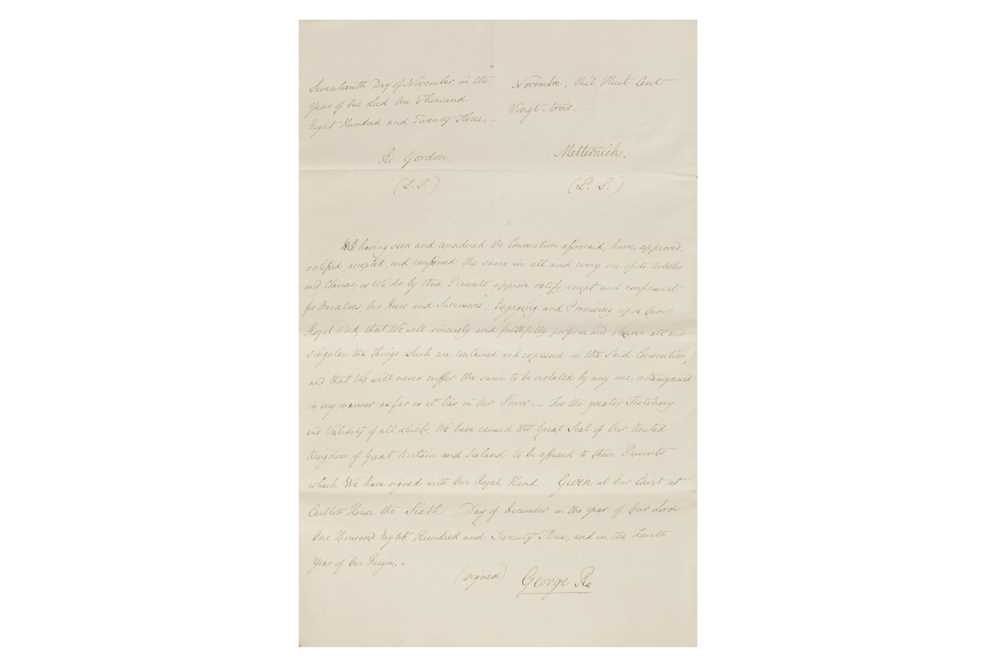 Seventeenth Day of November in the
Year of Our Lord One Thousand
Eight Hundred and Twenty Three. -
Novembre, Mil Huit Cent
Vingt-trois.
R. Gordon
(L.S.)
Metternich.
(L. S.)
We having seen and considered the Convention aforesaid, have, approved,
ratified, accepted, and confirmed the same in all and every one of its Articles
and Clauses, as We do by these Presents approve ratify accept and confirm it
for Ourselves, Our Heirs and Successors: Engaging and Promising upon Our
Royal Word, that We will sincerely and faithfully perform and observe all and
singular the things which are contained and expressed in the Said Convention,
and that We will never suffer the same to be violated by any one, or transgressed
in any manner as far as it lies in Our Power. - For the greater Testimony
and Validity of all which, We have caused the Great Seal of Our United
Kingdom of Great Britain and Ireland to be affixed to these Presents
which We have signed with Our Royal Hand. Given at Our Court at
Carlton House the Sixth Day of December in the year of Our Lord
One Thousand Eight Hundred and Twenty Three, and in the Fourth
Year of Our Reign. -
(signed) George R.